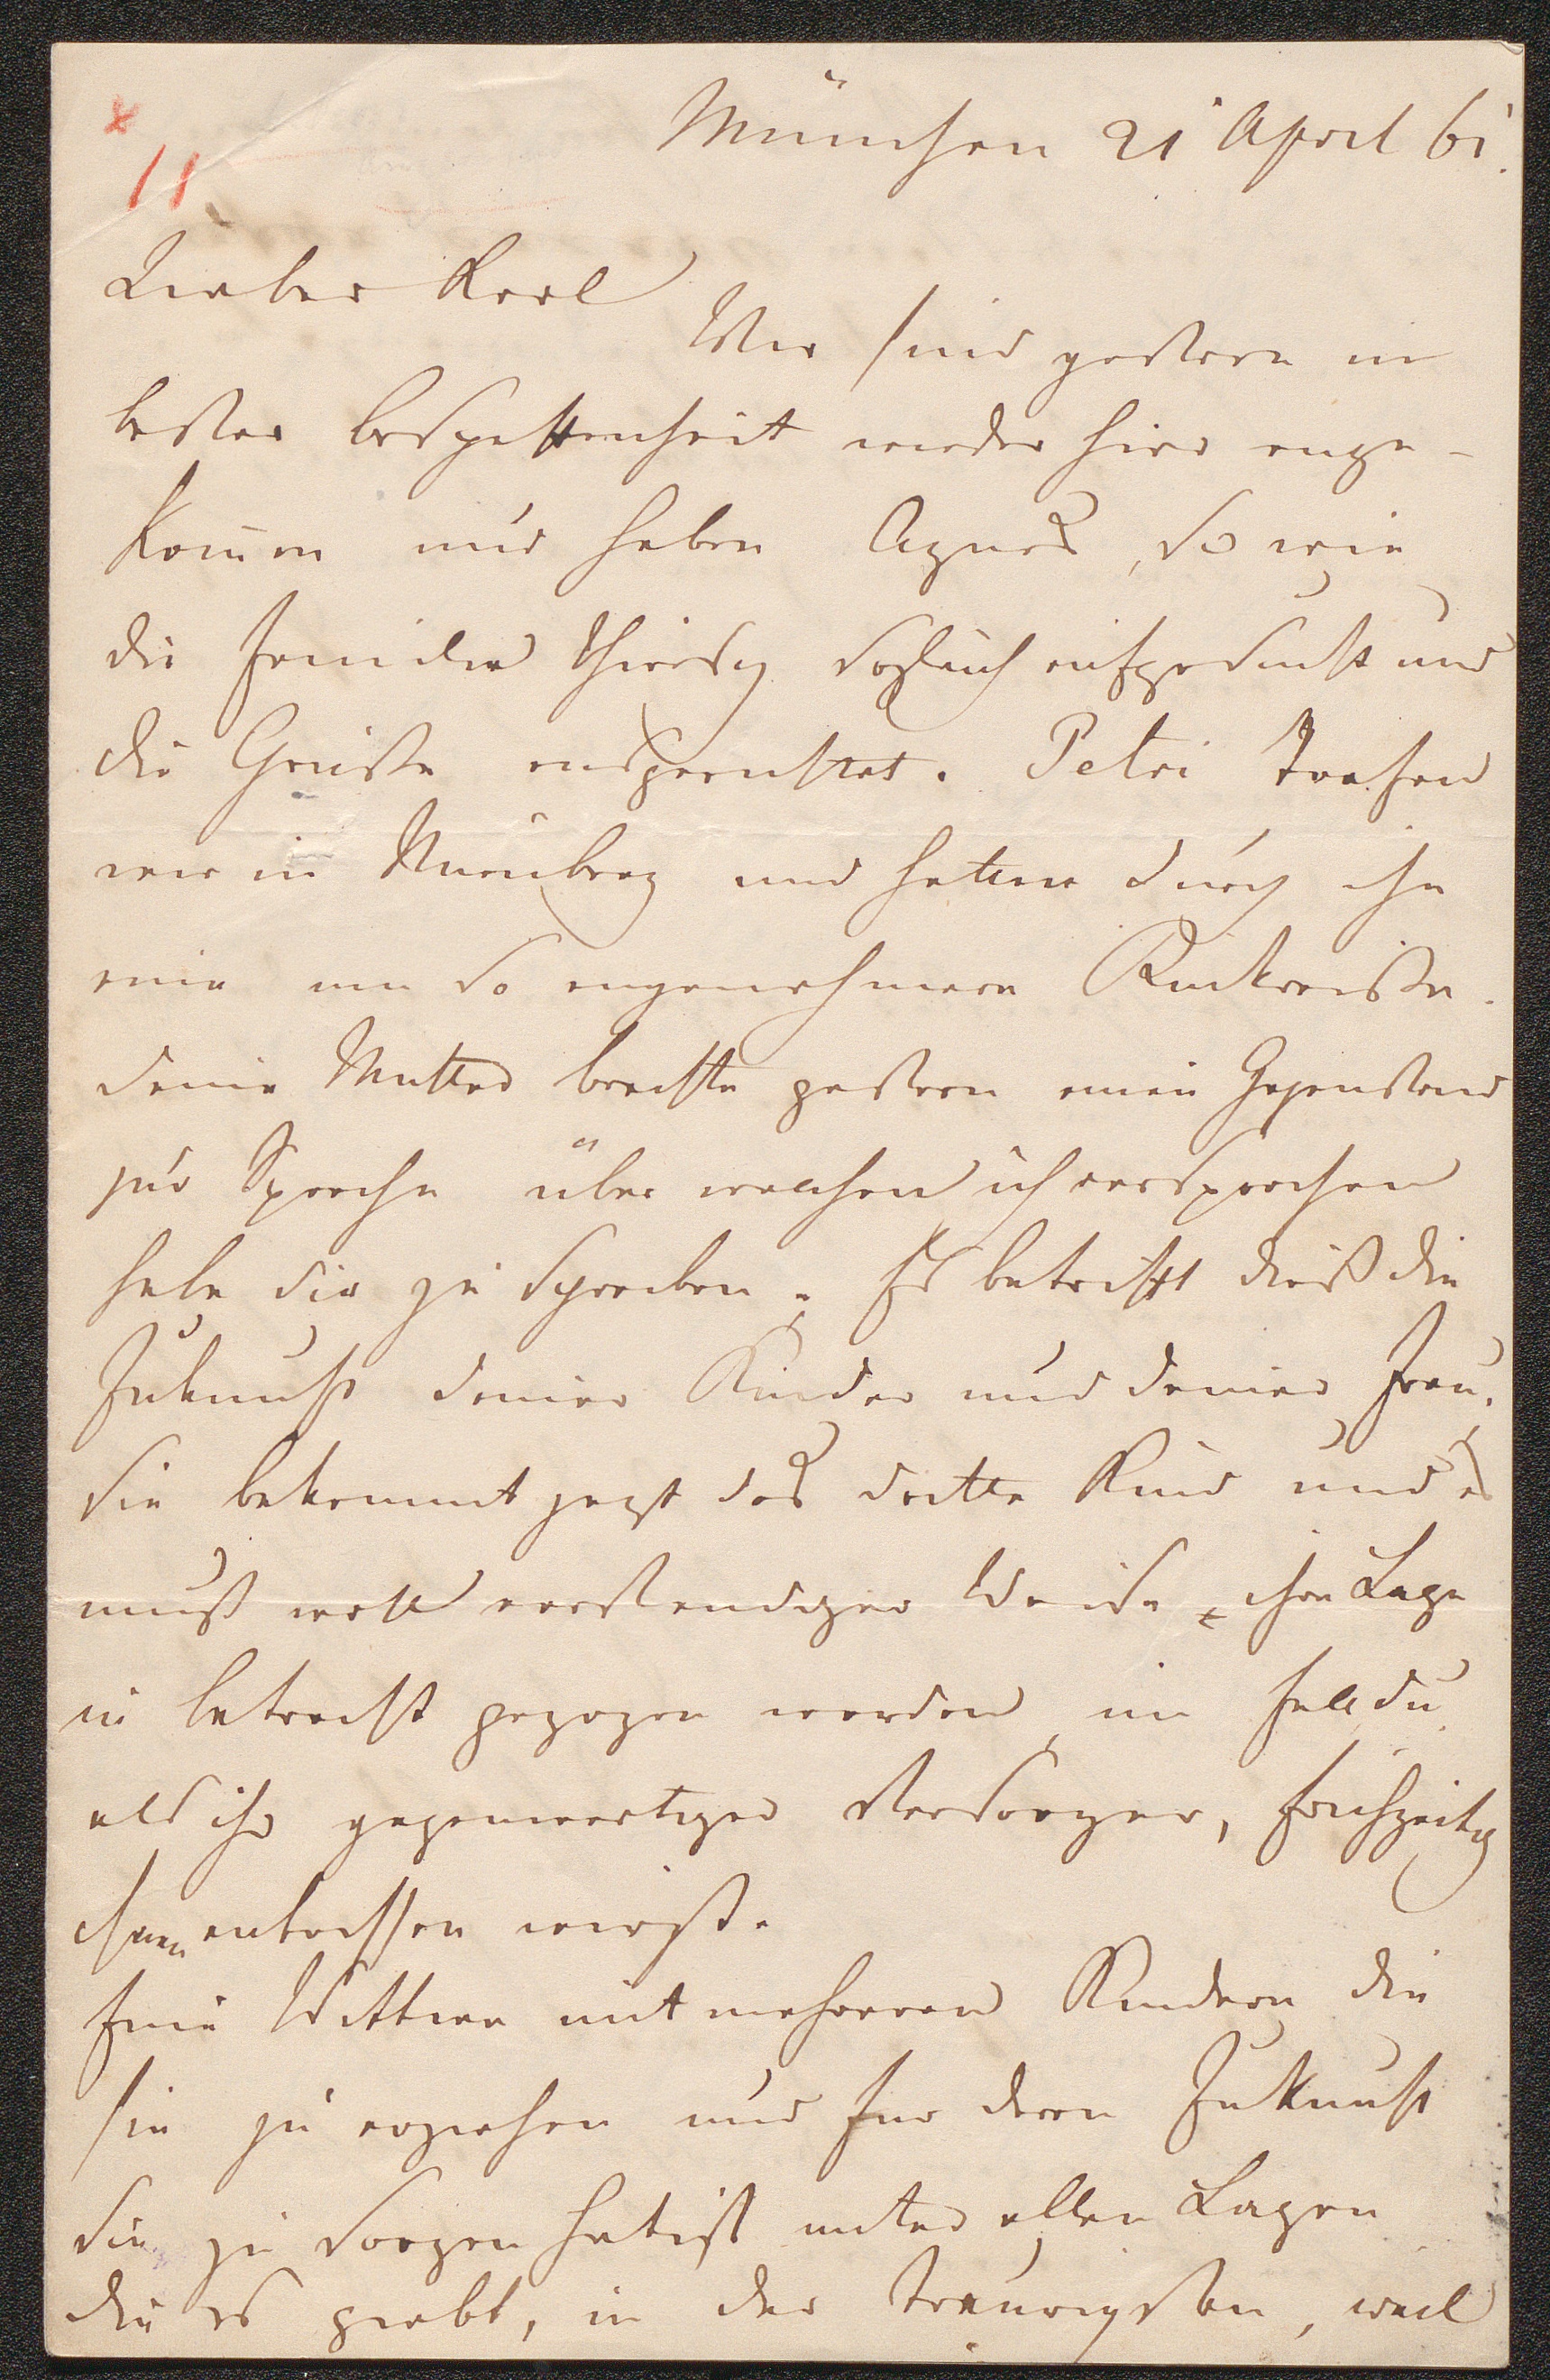 11
München 21 April 61.
Lieber Karl
Wir sind gestern in
bester wieder hier ange-
kommen und haben Agnes, so wie
die Familie Thiersch sogleich aufgesucht und
die Grüsse ausgerichtet. Petri trafen
wir in Nürnberg und hatten durch ihn
eine um so angenehmere Rückreisse.
Deine Mutter brachte gestern einen Gegenstand
zur Sprache über welchen ich versprochen
habe dir zu schreiben. Es betrifft dieß die
Zukunft deiner Kinder und deiner Frau.
Sie bekommt jezt das dritte Kind und es
muß wohl verständiger Weise ihre Lage
in betracht gezogen werden, im Fall du
als ihr gegenwertiger Versorger, frühzeitig
ihnen entrissen wirst.
Eine Wittwe mit mehreren Kindern die
sie zu erziehen und für deren Zukunft
sie zu sorgen hat ist unter allen Lagen
die es giebt, in der traurigsten, weil